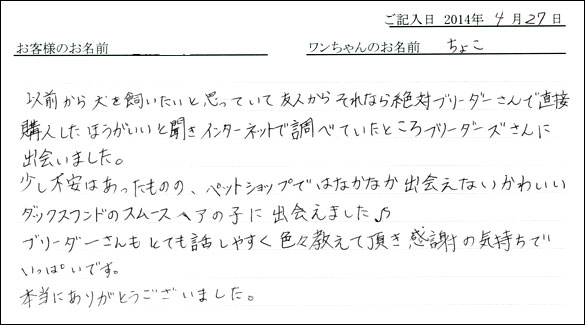 ご記入日 2014年 4月27日
お客様のお名前 ワンちゃんのお名前 ちょこ
以前から犬を飼いたいと思っていて友人からそれなら絶対ブリーダーさんで直接
購入したほうがいいと聞きインターネットで調べていたところブリーダーズさんに
出会いました。
少し不安はあったものの、ペットショップではなかなか出会えないかわいい
ダックスフンドのスムースヘアの子に出会えました♪
ブリーダーさんもとても話しやすく色々教えて頂き感謝の気持ちで
いっぱいです。
本当にありがとうございました。